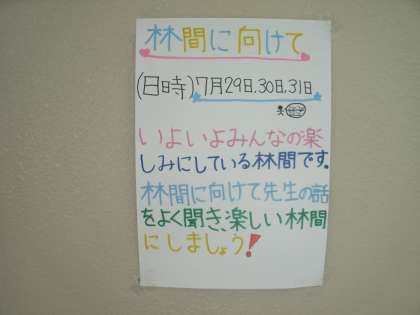 林間に向けて
(日時)7月29日.30日.31日
いよいよみんなの楽
しみにしている林間です。
林間に向けて、先生の話
をよく聞き、楽しい林間
にしましょう!